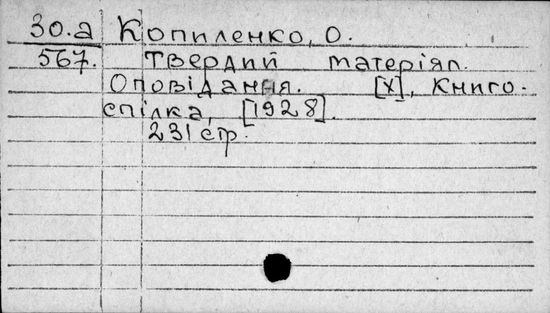 30.а Копиленко, О.
567. Твердий матеріял.
Оповідання. [Х], Книго-
спілка, [1928].
231 стр.